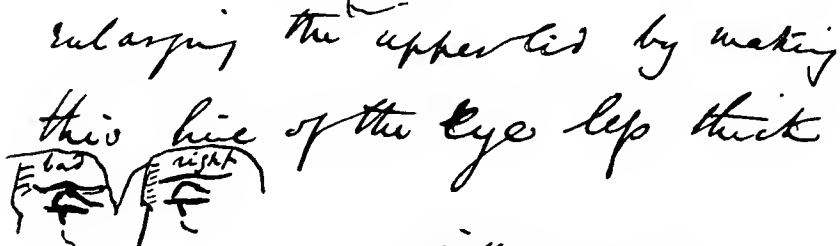 enlarging the upper lid by making
this line of the Eye less thick
bad right